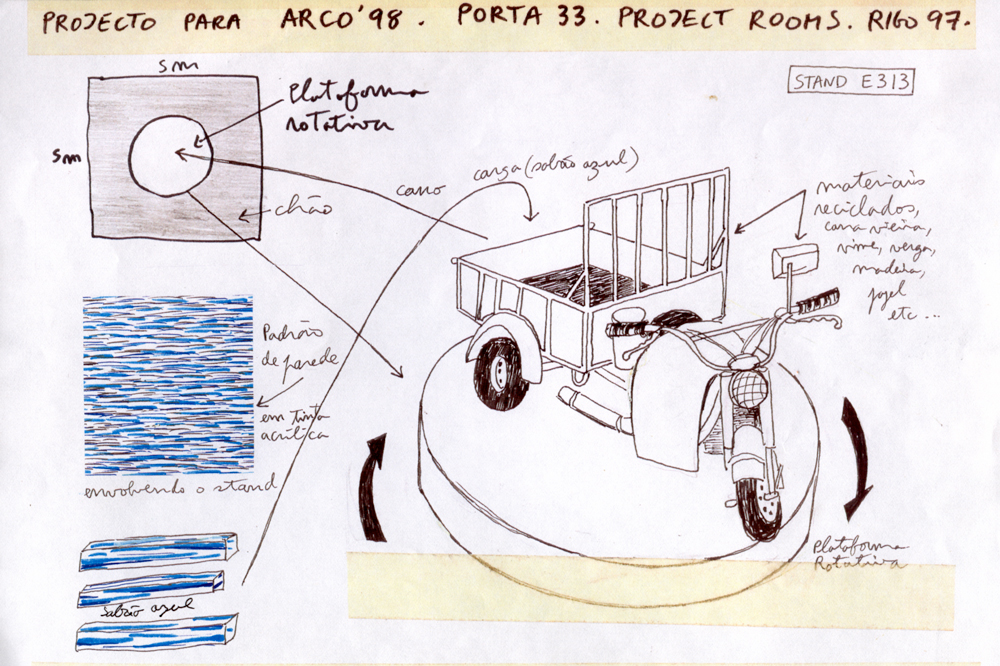 PROJECTO PARA ARCO'98. PORTA 33. PROJECT ROOMS. RIGO 97.
5m
STAND E313
Plataforma
rotativa
5m
carga (sabão azul)
carro
chão
materiais
reciclados,
cana vieira,
vime, verga,
madeira,
papel
etc...
Padrão
de parede
em tinta
acrílica
envolvendo o stand
Plataforma
Rotativa
Sabão azul